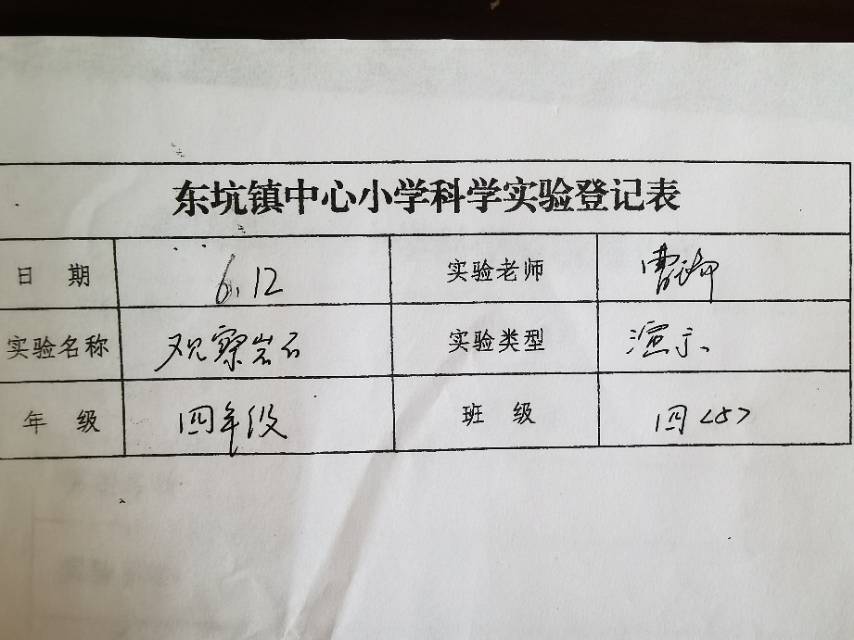 东坑镇中心小学科学实验登记表
日 期 6.12 实验老师 曹
实验名称 观察岩石 实验类型 演示
年 级 四年级 班 级 四<5>